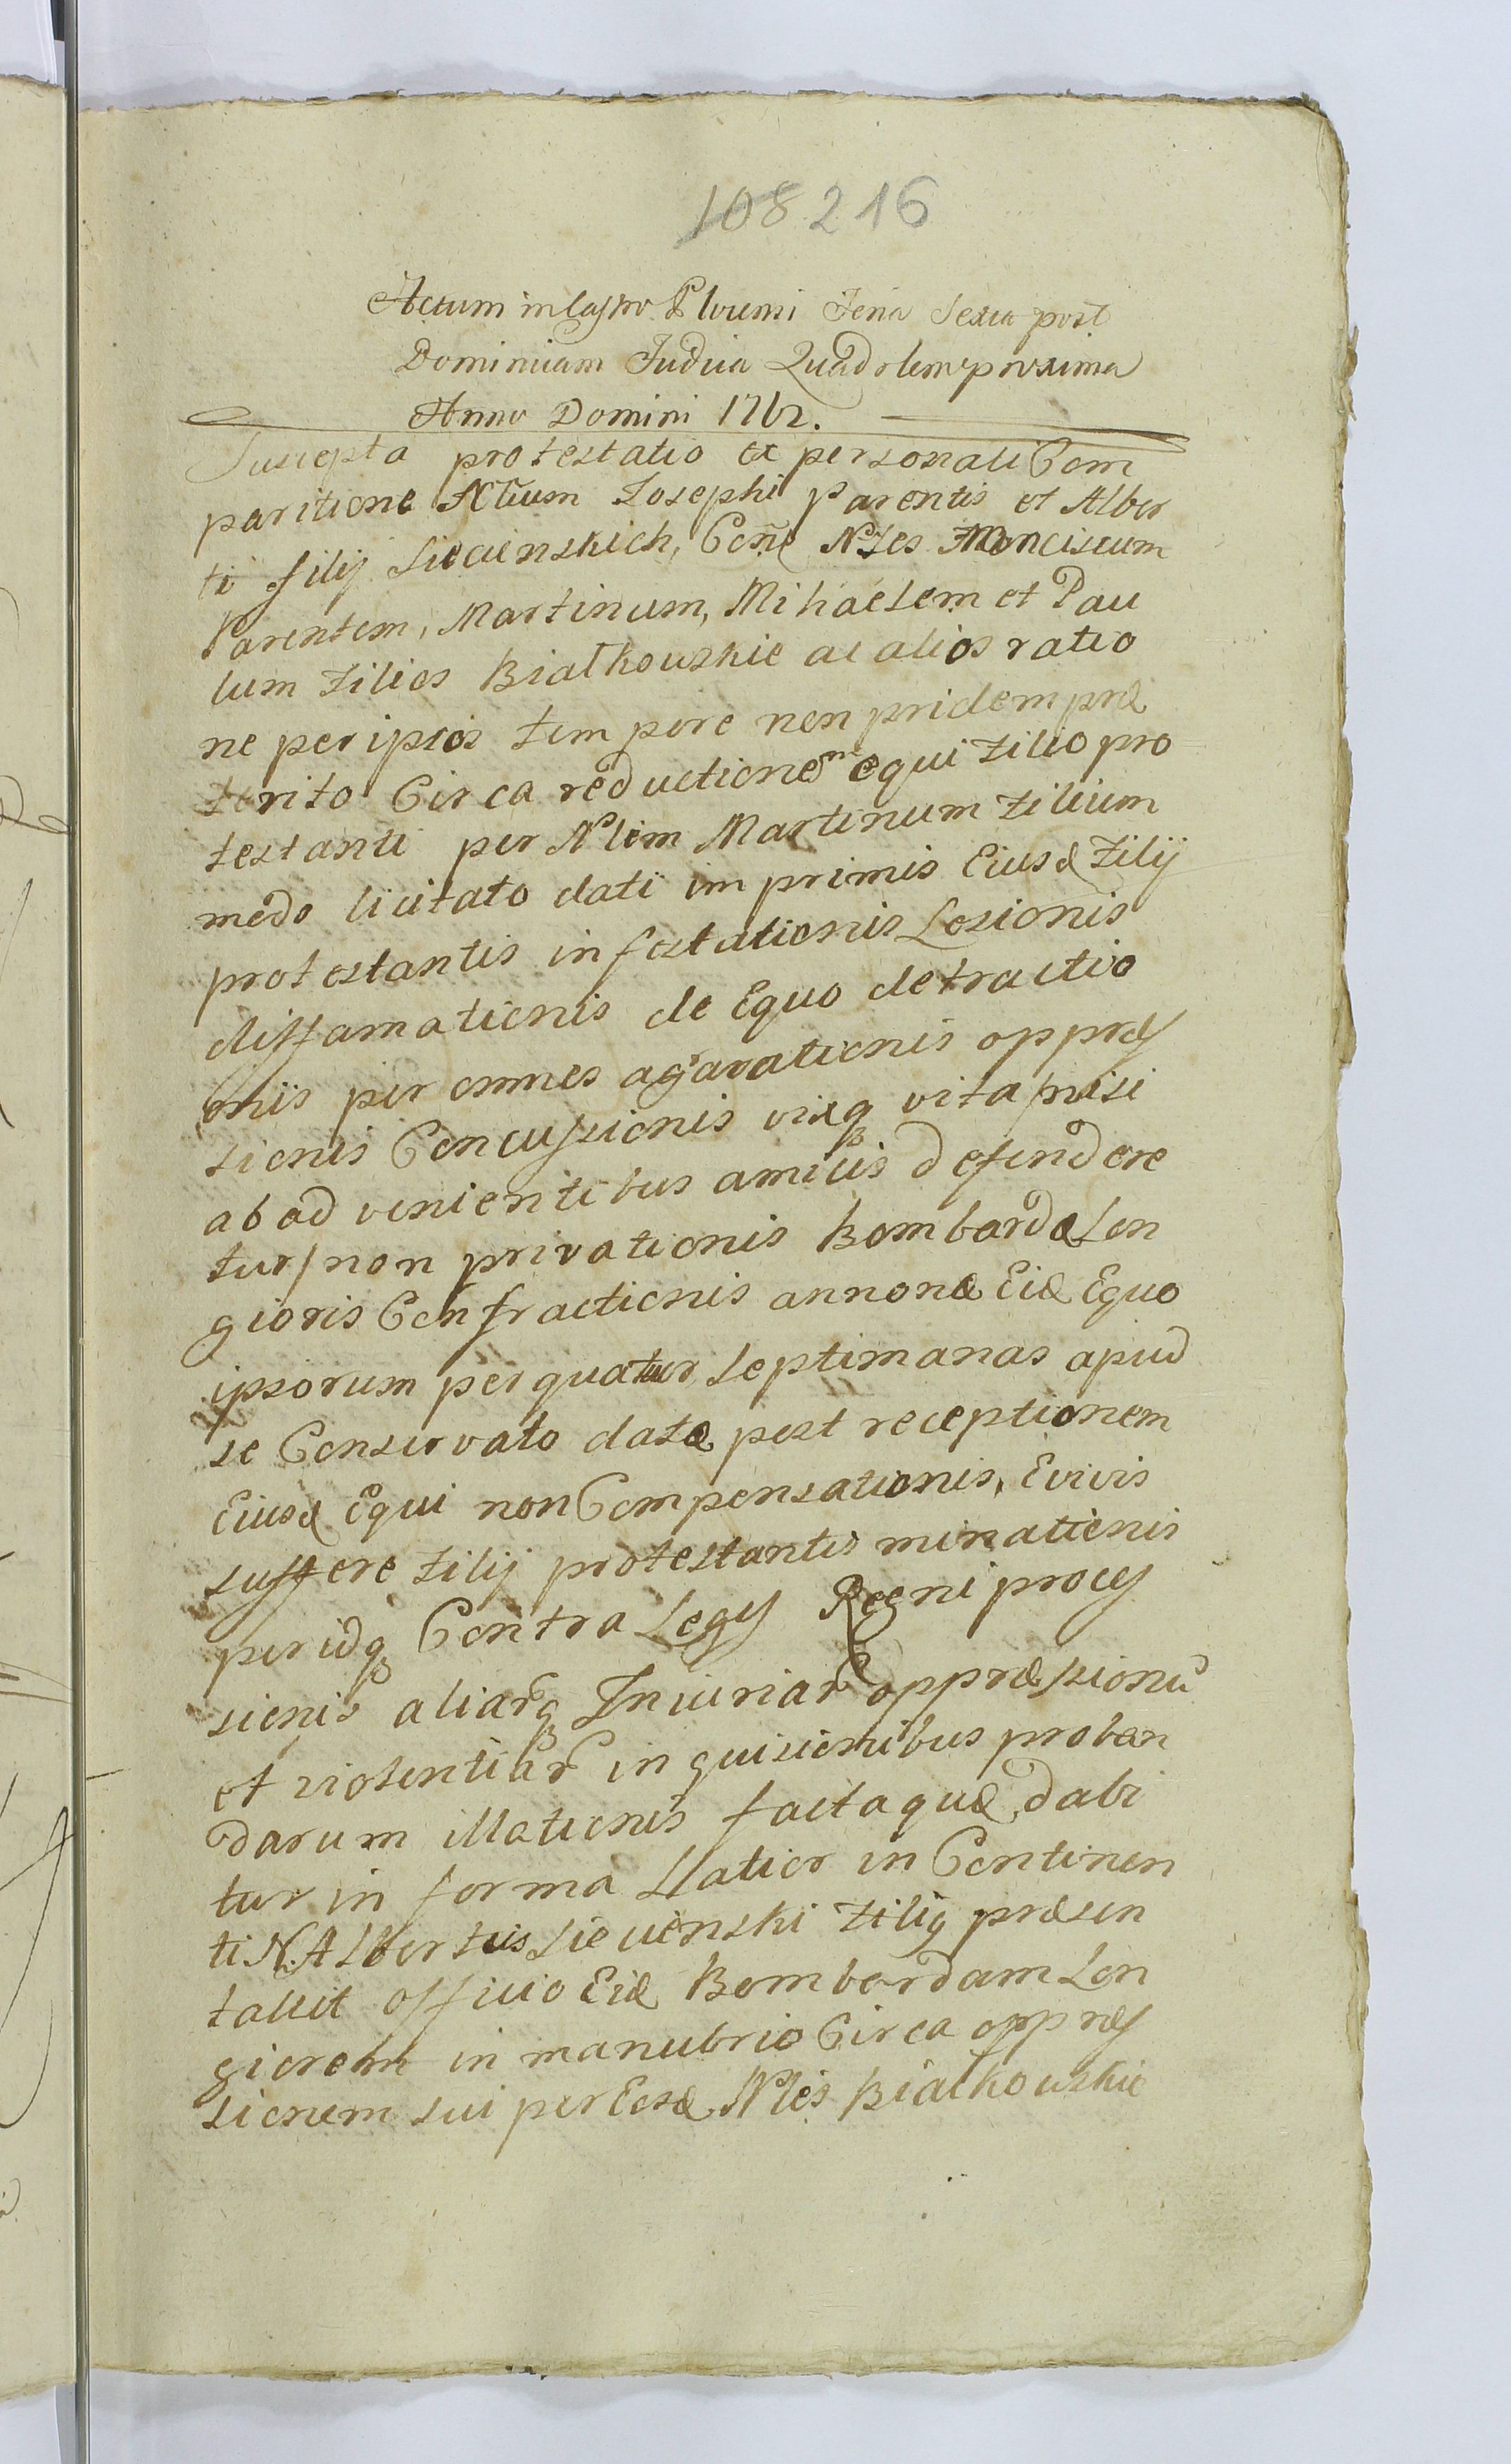 108 216
Actum in Castro Plocensi Feria Sexta post
Dominicam Judica Quadrlem proxima
Anno Domini 1762.
Suscepta protestatio ex personali Com
paritione Nblium Josephi Parentis et Alber
ti filij Siecienskich, Cone Nbles Franciscum
Parentem, Martinum, Mihaelem et Pau
lum Filios Białkowskie ac alios ratio
ne per ipsos tempore non pridem præ
terito Circa reductionem equi Filio pro
testanti per Nblem Martinum Filium
modo licitato dati imprimis Eiusd Filij
protestantis infestationis Lesionis
diffamationis de Equo detractio
onis per omnes agravationis oppres
sionis Concussionis viæq vita/nisi
ab advenientibus amicis defendere
tur/non privationis Bombardæ Lon
gioris Confractionis annonæ Eid Equo
ipsorum per quatuor Septimanas apud
se Conservato datæ post receptionem
Eiusd Equi non Compensationis, E vivis
sufferre Filij protestantis minationis
peridq Contra Leges Regni proces
sionis aliarq Iniuriar oppressionu
et violentiar inquisicionibus proban
darum illationis facta quæ dabi
tur in forma Latior in Continen
ti N. Albertus Siecienski Filig præsen
tavit officio Eid Bombardam Lon
giorem in manubrio Circa oppres
sionem sui per Eosd Nbles Białkowskie